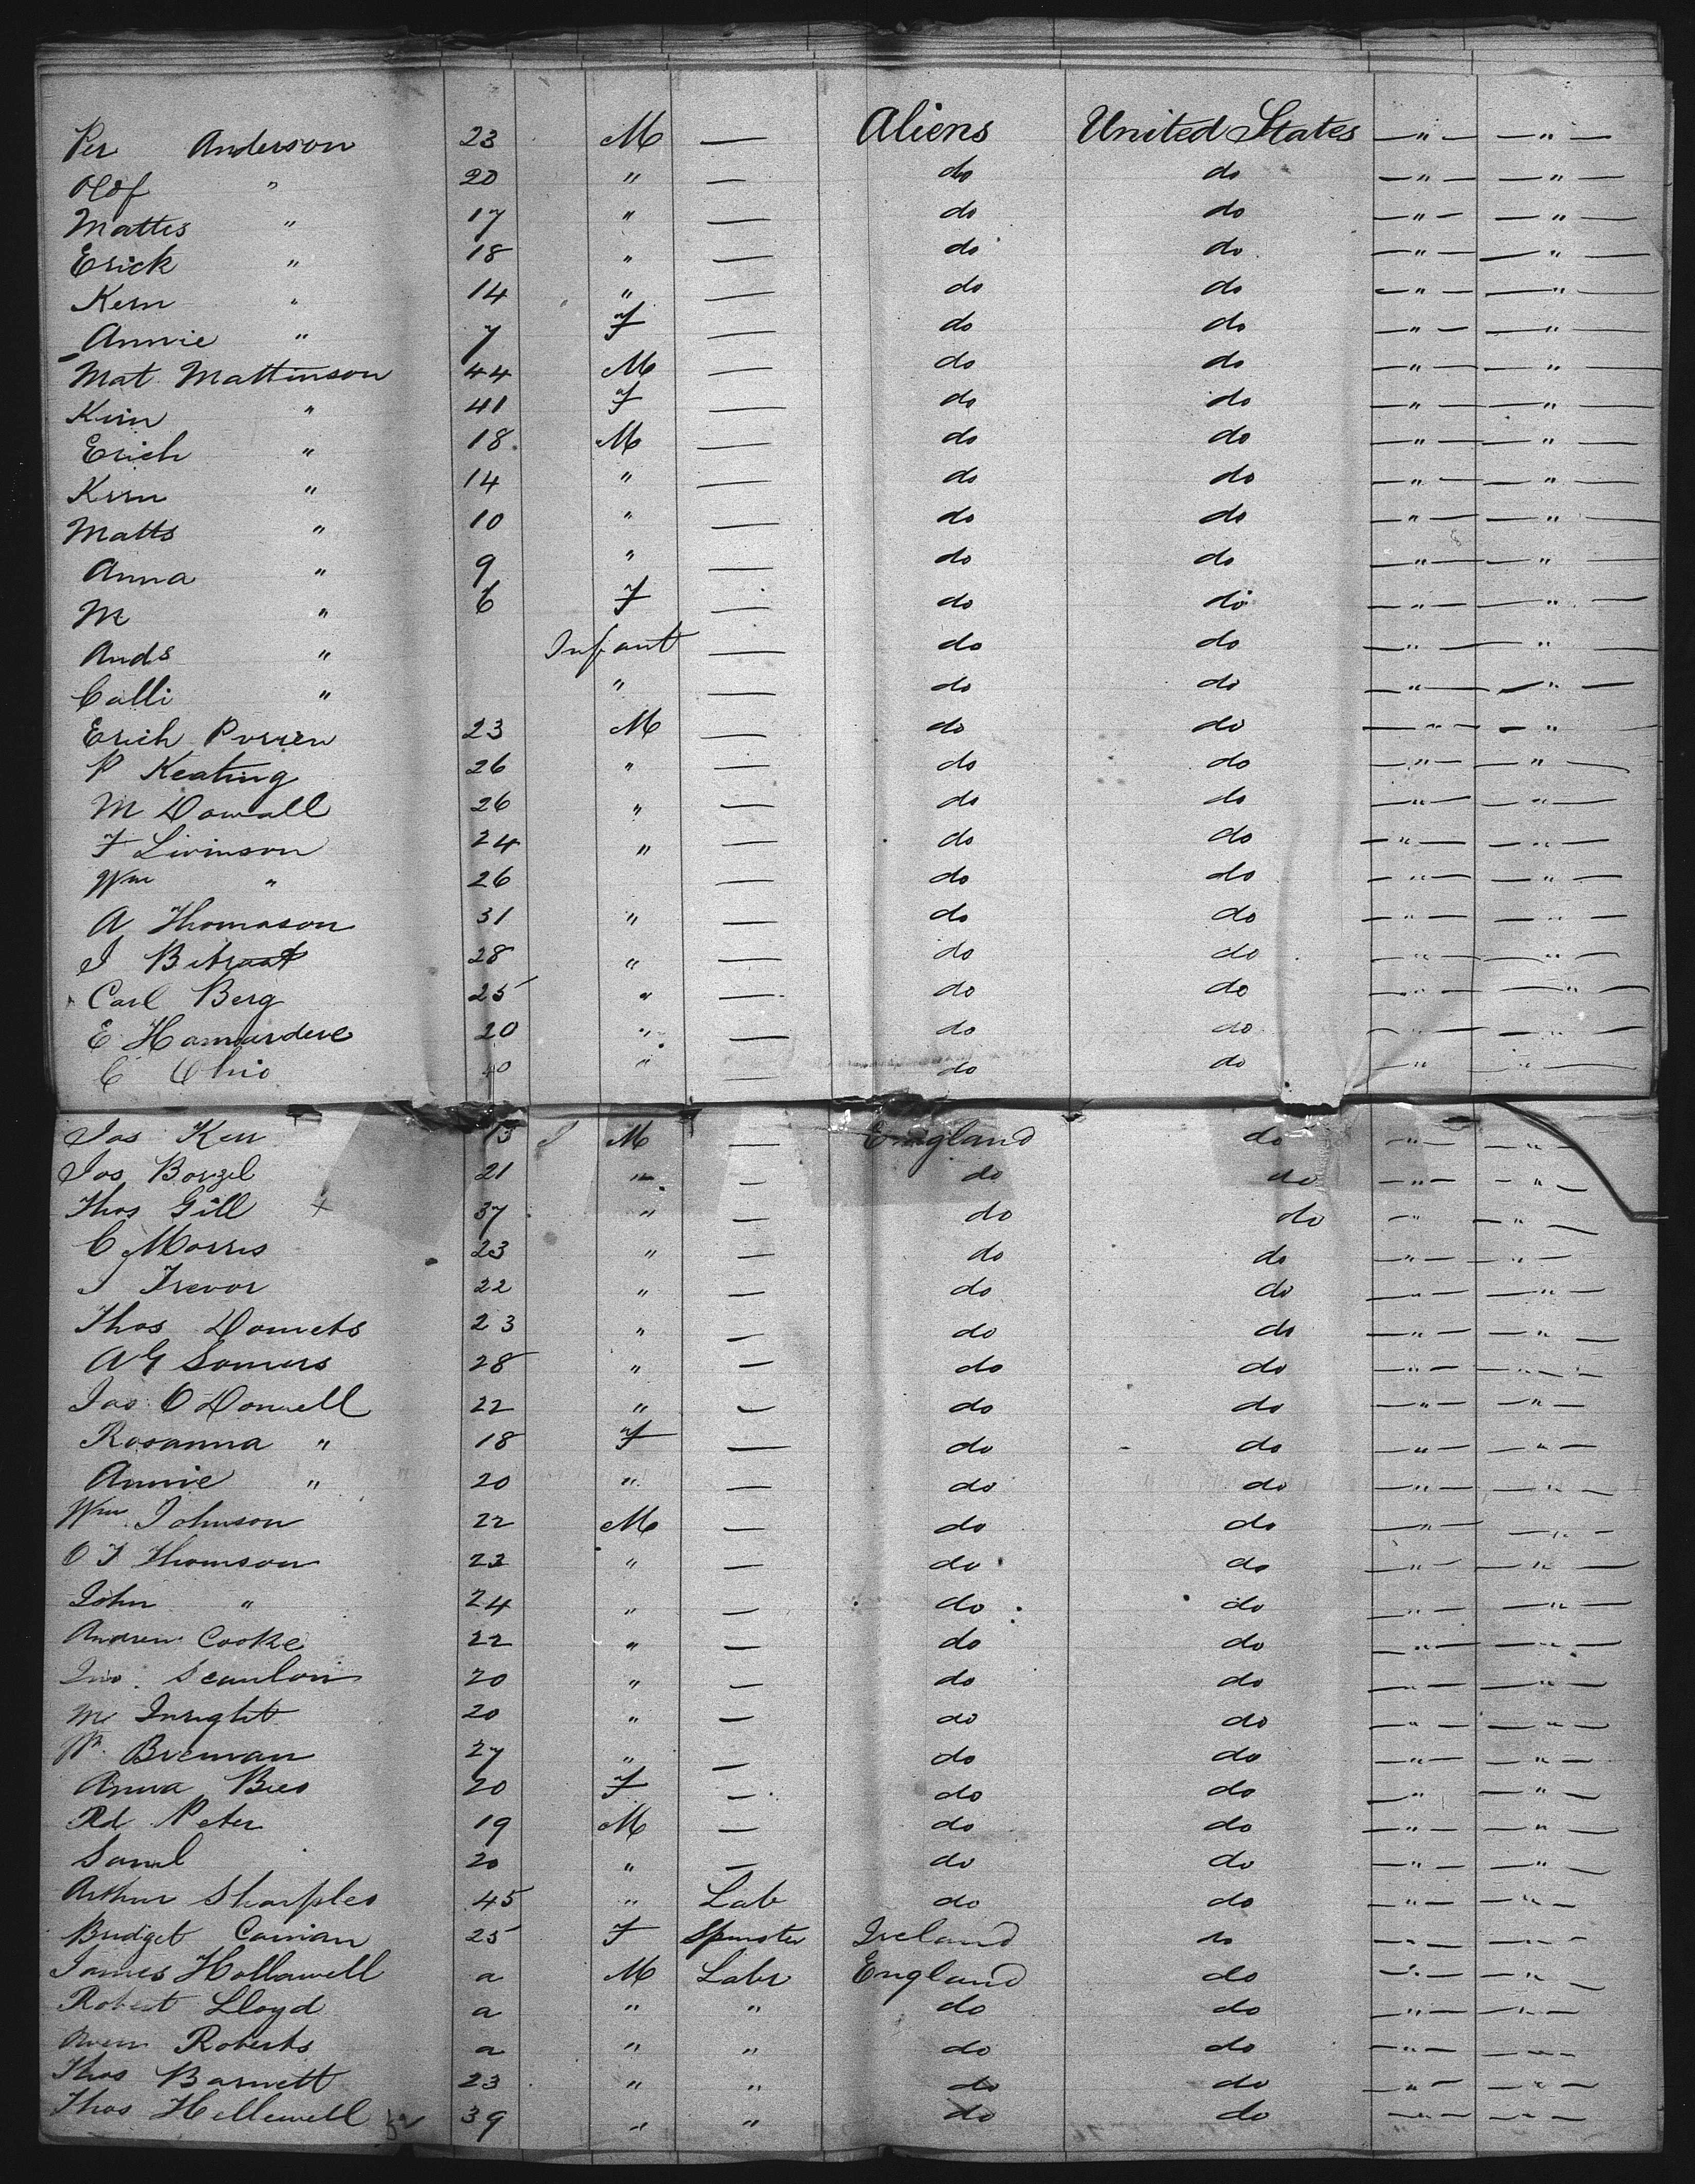 Per Anderson 23 M — Aliens United States — " — — " —
Olof " 20 " — do do — " — — " —
Mattes " 17 " — do do — " — — " —
Erick " 18 " — do do — " — — " —
Kern " 14 " — do do — " — — " —
Annie " 7 F — do do — " — — " —
Mat Mattinson 44 M — do do — " — — " —
" 41 F — do do — " — — " —
Erich " 18 M — do do — " — — " —
" 14 " — do do — " — — " —
Matts " 10 " — do do — " — — " —
Anna " 9 " — do do — " — — " —
M " 6 F — do do — " — — " —
Ands " Infant — do do — " — — " —
Calli " " — do do — " — — " —
Erich 23 M — do do — " — — " —
P Keating 26 " — do do — " — — " —
M Dowall 26 " — do do — " — — " —
F Livinson 24 " — do do — " — — " —
Wm " 26 " — do do — " — — " —
A Thomason 31 " — do do — " — — " —
28 " — do do — " — — " —
Carl Berg 25 " — do do — " — — " —
E 20 " — do do — " — — " —
C Ohio " — do do — " — — " —
Jas Kerr M — England do — " — — " —
Jos 21 " — do do — " — — " —
Thos Gill 37 " — do do — " — — " —
C Morris 23 " — do do — " — — " —
Trevor 22 " — do do — " — — " —
Thos 23 " — do do — " — — " —
A G Somers 28 " — do do — " — — " —
Jas O Donnell 22 " — do do — " — — " —
Rosanna " 18 F — do do — " — — " —
Annie " 20 " — do do — " — — " —
Wm Johnson 22 M — do do — " — — " —
O J Thomson 22 " — do do — " — — " —
John " 24 " — do do — " — — " —
Andrew Cooke 22 " — do do — " — — " —
Jno. Scanlon 20 " — do do — " — — " —
M Inright 20 " — do do — " — — " —
Brennan 27 " — do do — " — — " —
Anna 20 F — do do — " — — " —
Rd Peter 19 M — do do — " — — " —
Saml 20 " — do do — " — — " —
Arthur Sharples 45 " Lab do do — " — — " —
Bridget 25 F Spinster Ireland do — " — — " —
James Hollawell a M Labr England do — " — — " —
Robert Lloyd a " " do do — " — — " —
Owen Roberts a " " do do — " — — " —
Thos Barnett 23 " " do do — " — — " —
Thos Hellewell 39 " " do do — " — — " —